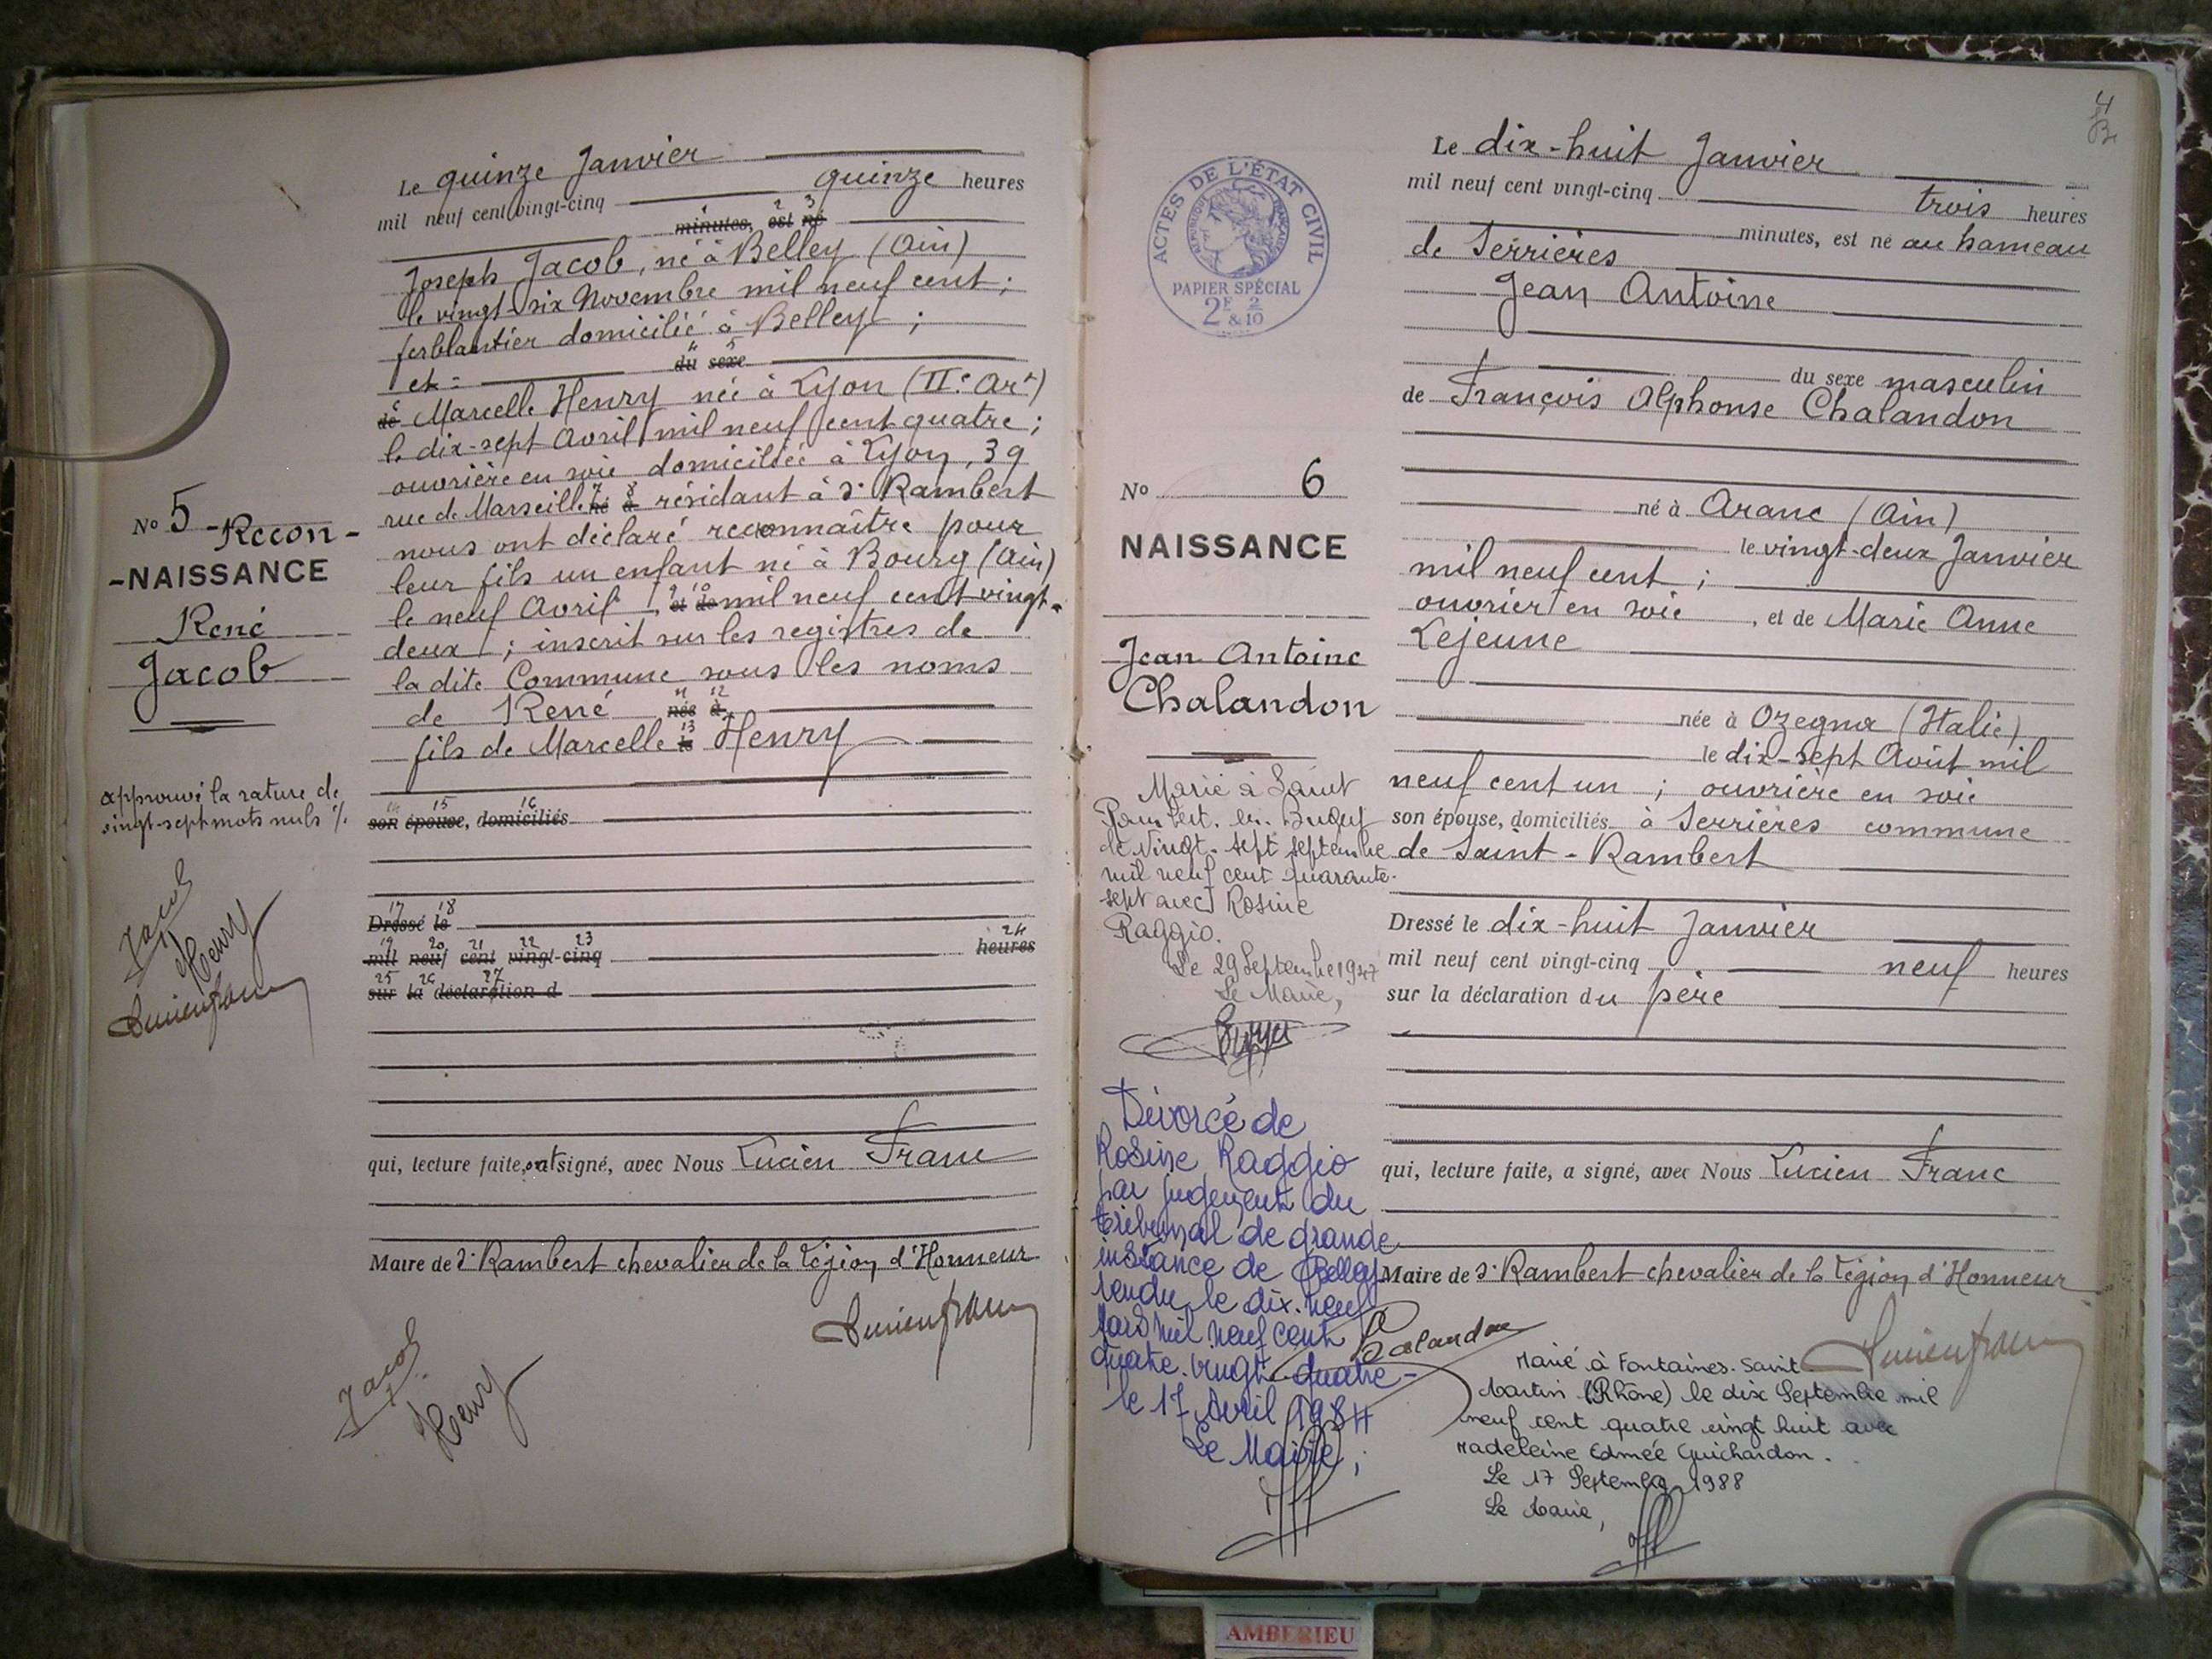 Le quinze Janvier
mil neuf cent vingt-cinq quinze heures
minutes, est né
Joseph Jacob, né à Belley (Ain)
le vingt-six Novembre mil neuf cent ;
ferblantier domicilié à Belley ;
et : du sexe
de Marcelle Henry née à Lyon (IIe Art)
le dix-sept Avril mil neuf cent quatre ;
ouvrière en soie domiciliée à Lyon, 39
rue de Marseille né à résidant à St Rambert
nous ont déclaré reconnaître pour
leur fils un enfant né à Bourg (Ain)
le neuf Avril et de mil neuf cent vingt-
deux ; inscrit sur les registres de
la dite Commune sous les noms
de René née à
fils de Marcelle le Henry
son épouse, domiciliés
Dressé le
mil neuf cent vingt-cinq heures
sur la déclaration d
qui, lecture faite, ont signé, avec Nous Lucien Franc
Maire de St Rambert chevalier de la Légion d'Honneur
Lucien Franc
Jacob
Henry
No 5 - Recon-
-NAISSANCE
René
Jacob
approuvé la rature de
vingt-sept mots nuls
Jacob
Henry
Lucien Franc
4
ACTES DE L'ÉTAT CIVIL
RÉPUBLIQUE FRANÇAISE
PAPIER SPÉCIAL
2F 2
& 10
No 6
NAISSANCE
Jean Antoine
Chalandon
Marié à Saint
Rambert. en. Bugey
le Vingt-sept septembre
mil neuf cent quarante-
sept avec Rosine
Raggio.
Le 29 Septembre 1947
Le Maire,
Divorcé de
Rosine Raggio
par jugement du
tribunal de grande
instance de Belley
rendu le dix-neuf
Mars mil neuf cent
quatre-vingt-quatre-
le 17 Avril 1984
Le Maire,
Le dix-huit Janvier
mil neuf cent vingt-cinq trois heures
minutes, est né au hameau
de Serrières
Jean Antoine
du sexe masculin
de François Alphonse Chalandon
né à Aranc (Ain)
le vingt-deux Janvier
mil neuf cent ;
ouvrier en soie, et de Marie Anne
Lejeune
née à Ozegna (Italie)
le dix-sept Août mil
neuf cent un ; ouvrière en soie
son épouse, domiciliés à Serrières commune
de Saint-Rambert
Dressé le dix-huit Janvier
mil neuf cent vingt-cinq neuf heures
sur la déclaration du père
qui, lecture faite, a signé, avec Nous Lucien Franc
Maire de St Rambert chevalier de la Légion d'Honneur
Chalandon
Lucien Franc
Marié à Fontaines-Saint
Martin (Rhône) le dix Septembre mil
neuf cent quatre vingt huit avec
Madeleine Edmée Guichardon.
Le 17 Septembre 1988
Le Maire,
AMBERIEU